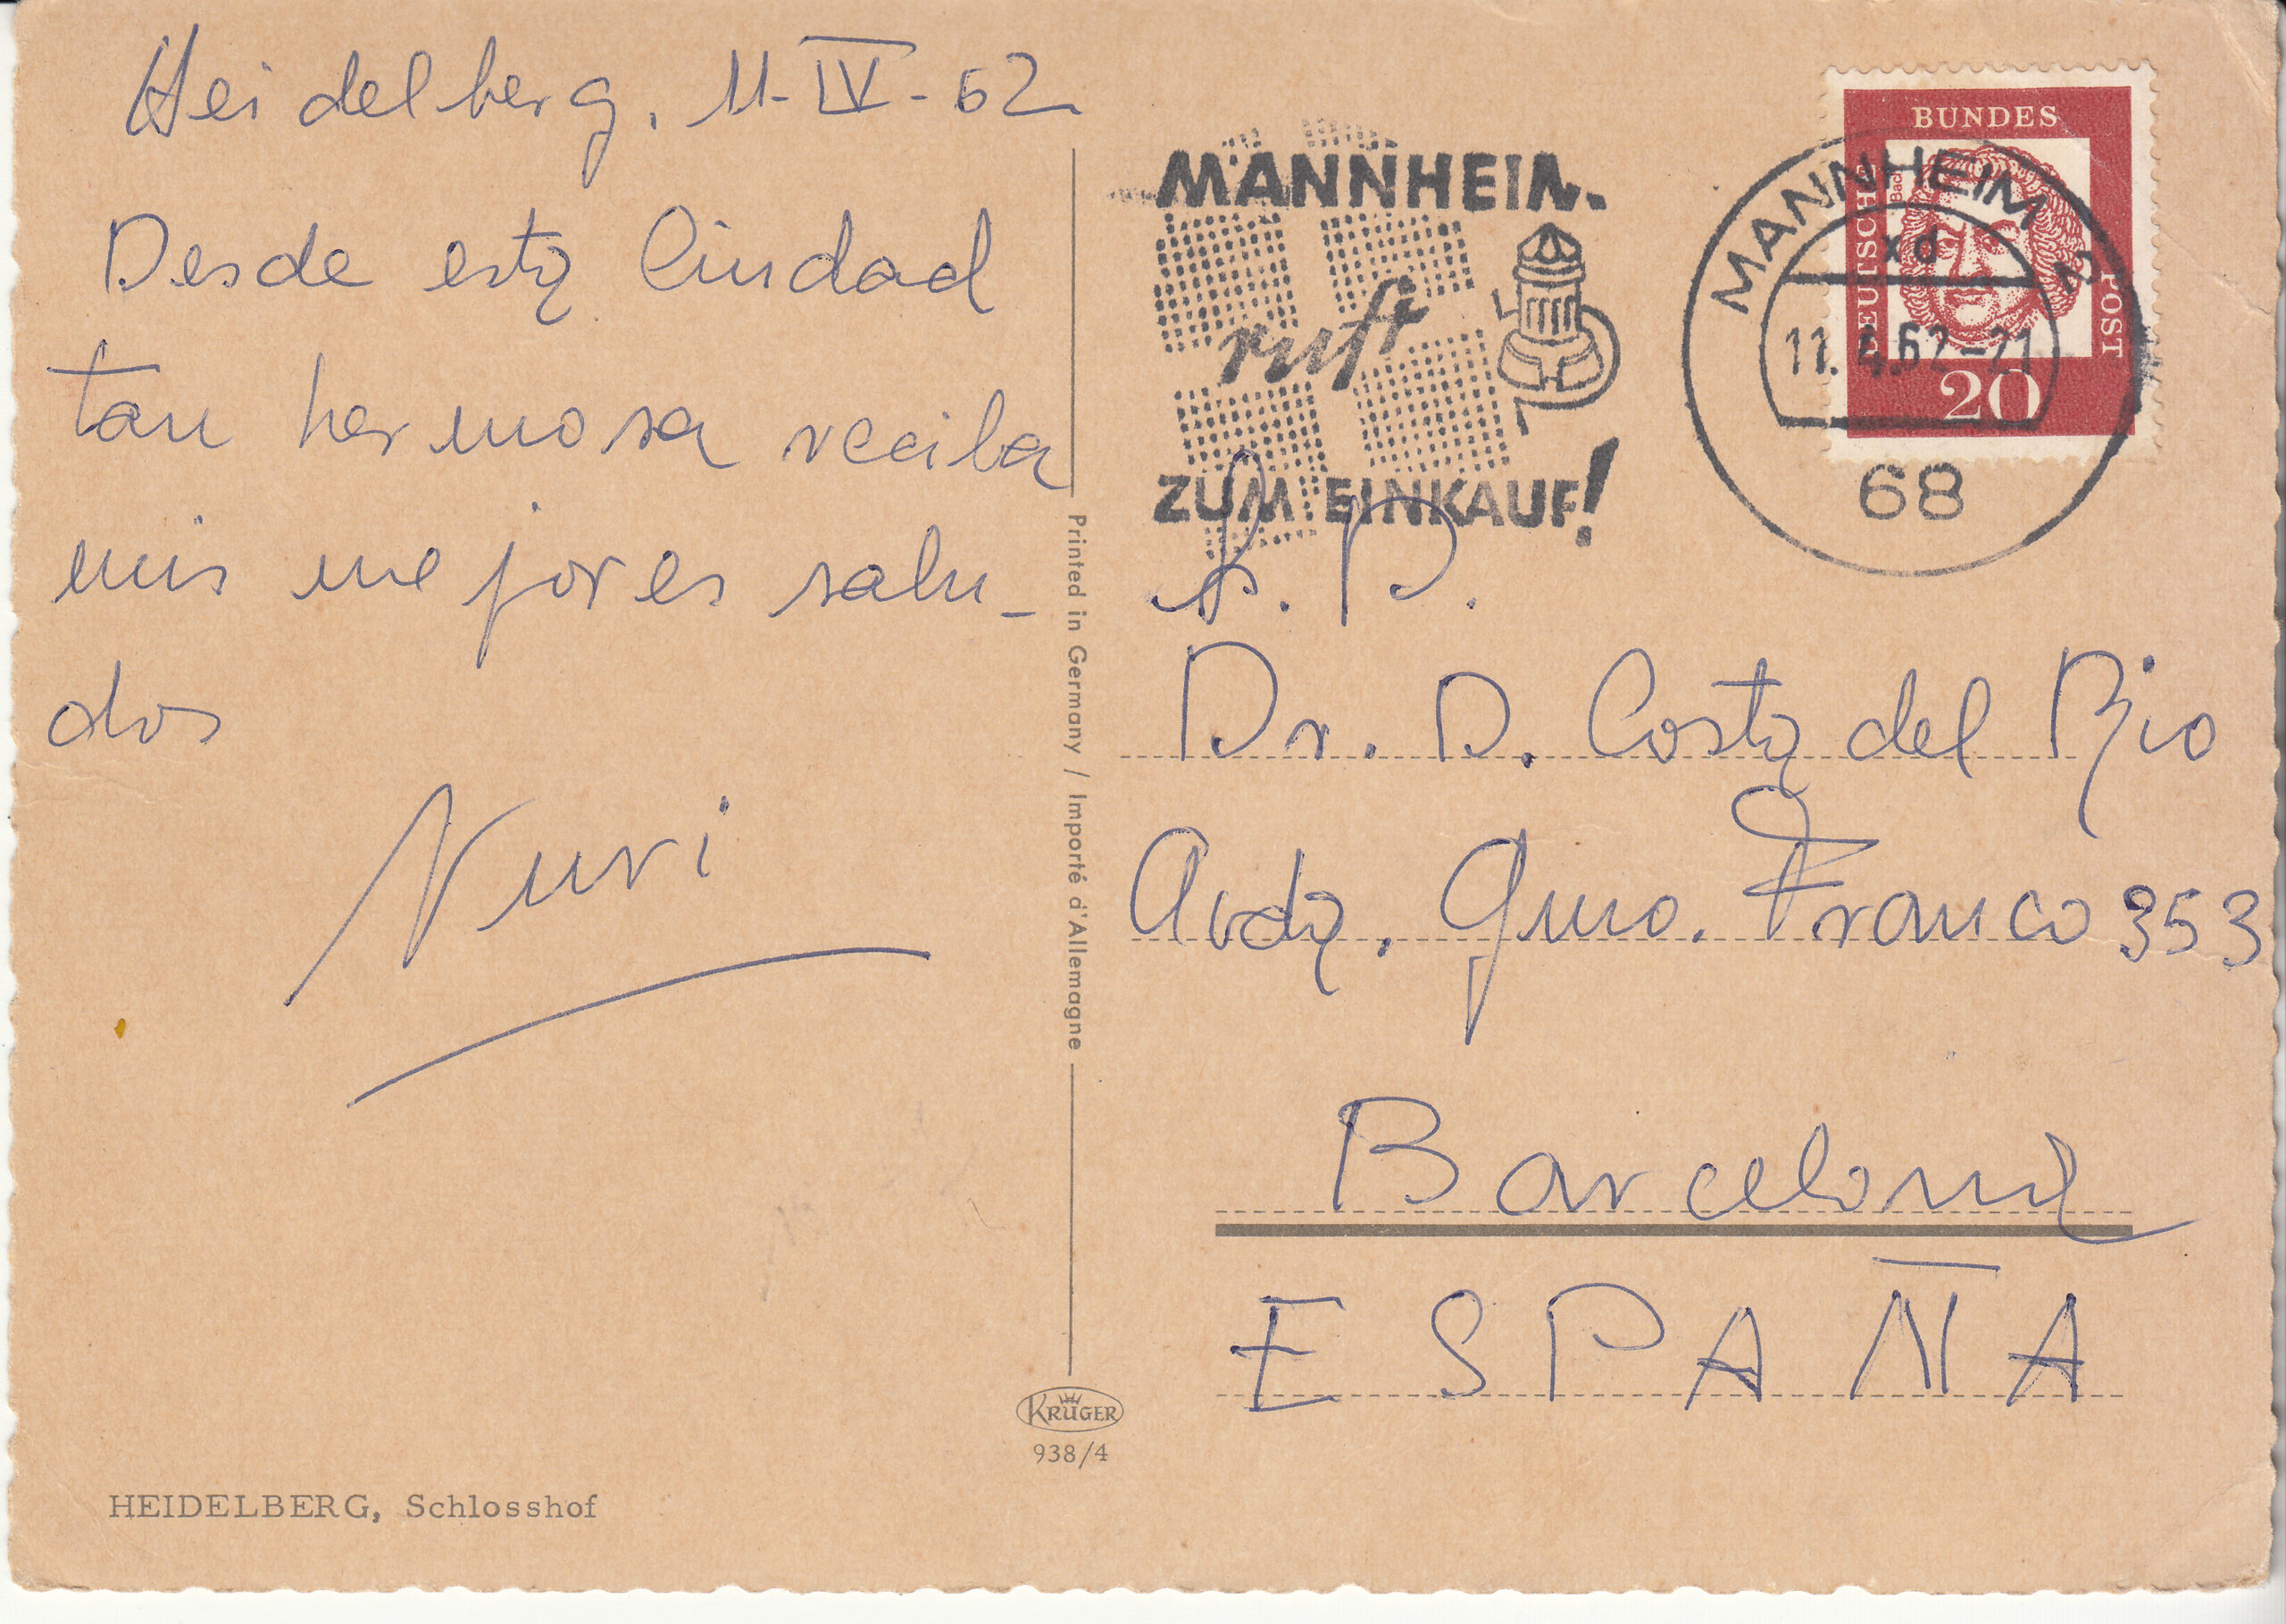 Heidelberg, 11-IV-62
Desde esta Ciudad
tan hermosa reciba
mis mejores salu-
dos
Nuri
HEIDELBERG, Schlosshof
Printed in Germany / Importé d'Allemagne
KRÜGER
938/4
MANNHEIM
ruft
ZUM EINKAUF!
BUNDES
DEUTSCHE
POST
Bach
20
MANNHEIM 2
xd
11.4.62-21
68
Dr. D. Costa del Rio
Avda. Gmo. Franco 353
Barcelona
ESPAÑA